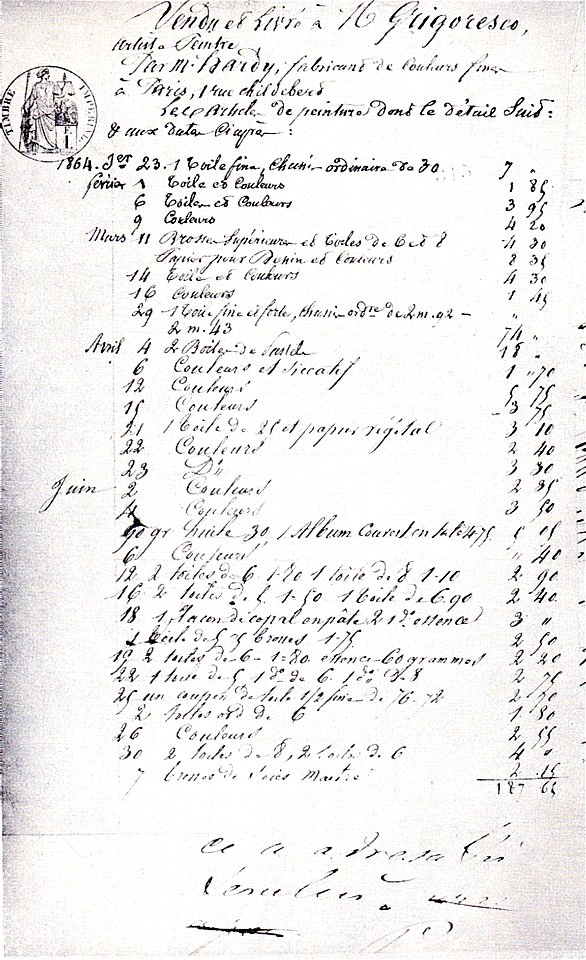 Vendu et Livré à N Grigoresco,
Artiste Peintre
Par M. Hardy, fabricant de Couleurs fines
à Paris, 1 rue childebert
Les articles de peinture dont le détail Suit
& aux dates Ciaprès :
TIMBRE IMPERIAL
1864. Jer 23. 1 Toile fine, chassis ordinaire de 30 7 "
février 1 Toile et Couleurs 1 85
6 Toiles et Couleurs 3 95
9 Couleurs 4 20
Mars 11 Brosses Supérieures et Toiles de 6 et 8 4 30
Papier pour Dessin et Couleurs 8 35
14 Toile et Couleurs 4 30
16 Couleurs 1 45
29 1 Toile fine et forte, chassis ordre de 2 m. 92 - "
2 m. 43 74 "
Avril 4 2 Boites de Pastels 18 "
6 Couleurs et Siccatif 1 70
12 Couleurs 5 75
15 Couleurs 3 75
21 1 Toile de 25 et papier végétal 3 10
22 Couleurs 2 40
23 Do 3 30
Juin 2 Couleurs 2 85
4 Couleurs 3 50
90 gr huile 30, 1 Album Couvert en toile 4 75
6 Couleurs " 40
12 2 toiles de 6 1-80 1 toile de 8 1-10 2 90
16 2 toiles de 5 1-50 1 Toile de 6 90 2 40
18 1 flacon de copal en pâte 2 1 do essence 3 "
1 Toile de 5 brosses 1-75 2 50
19 2 toiles de 6 - 1-80 essence 60 grammes 2 20
22 1 toile de 5 1 do de 6 1 do de 8 2 75
25 un coupon de toile 1/2 fine de 76-72 2 70
2 toiles ord de 6 1 80
26 Couleurs 2 55
30 2 toiles de 8, 2 toiles de 6 4 "
7 brosses de Soies 2 15
187 65